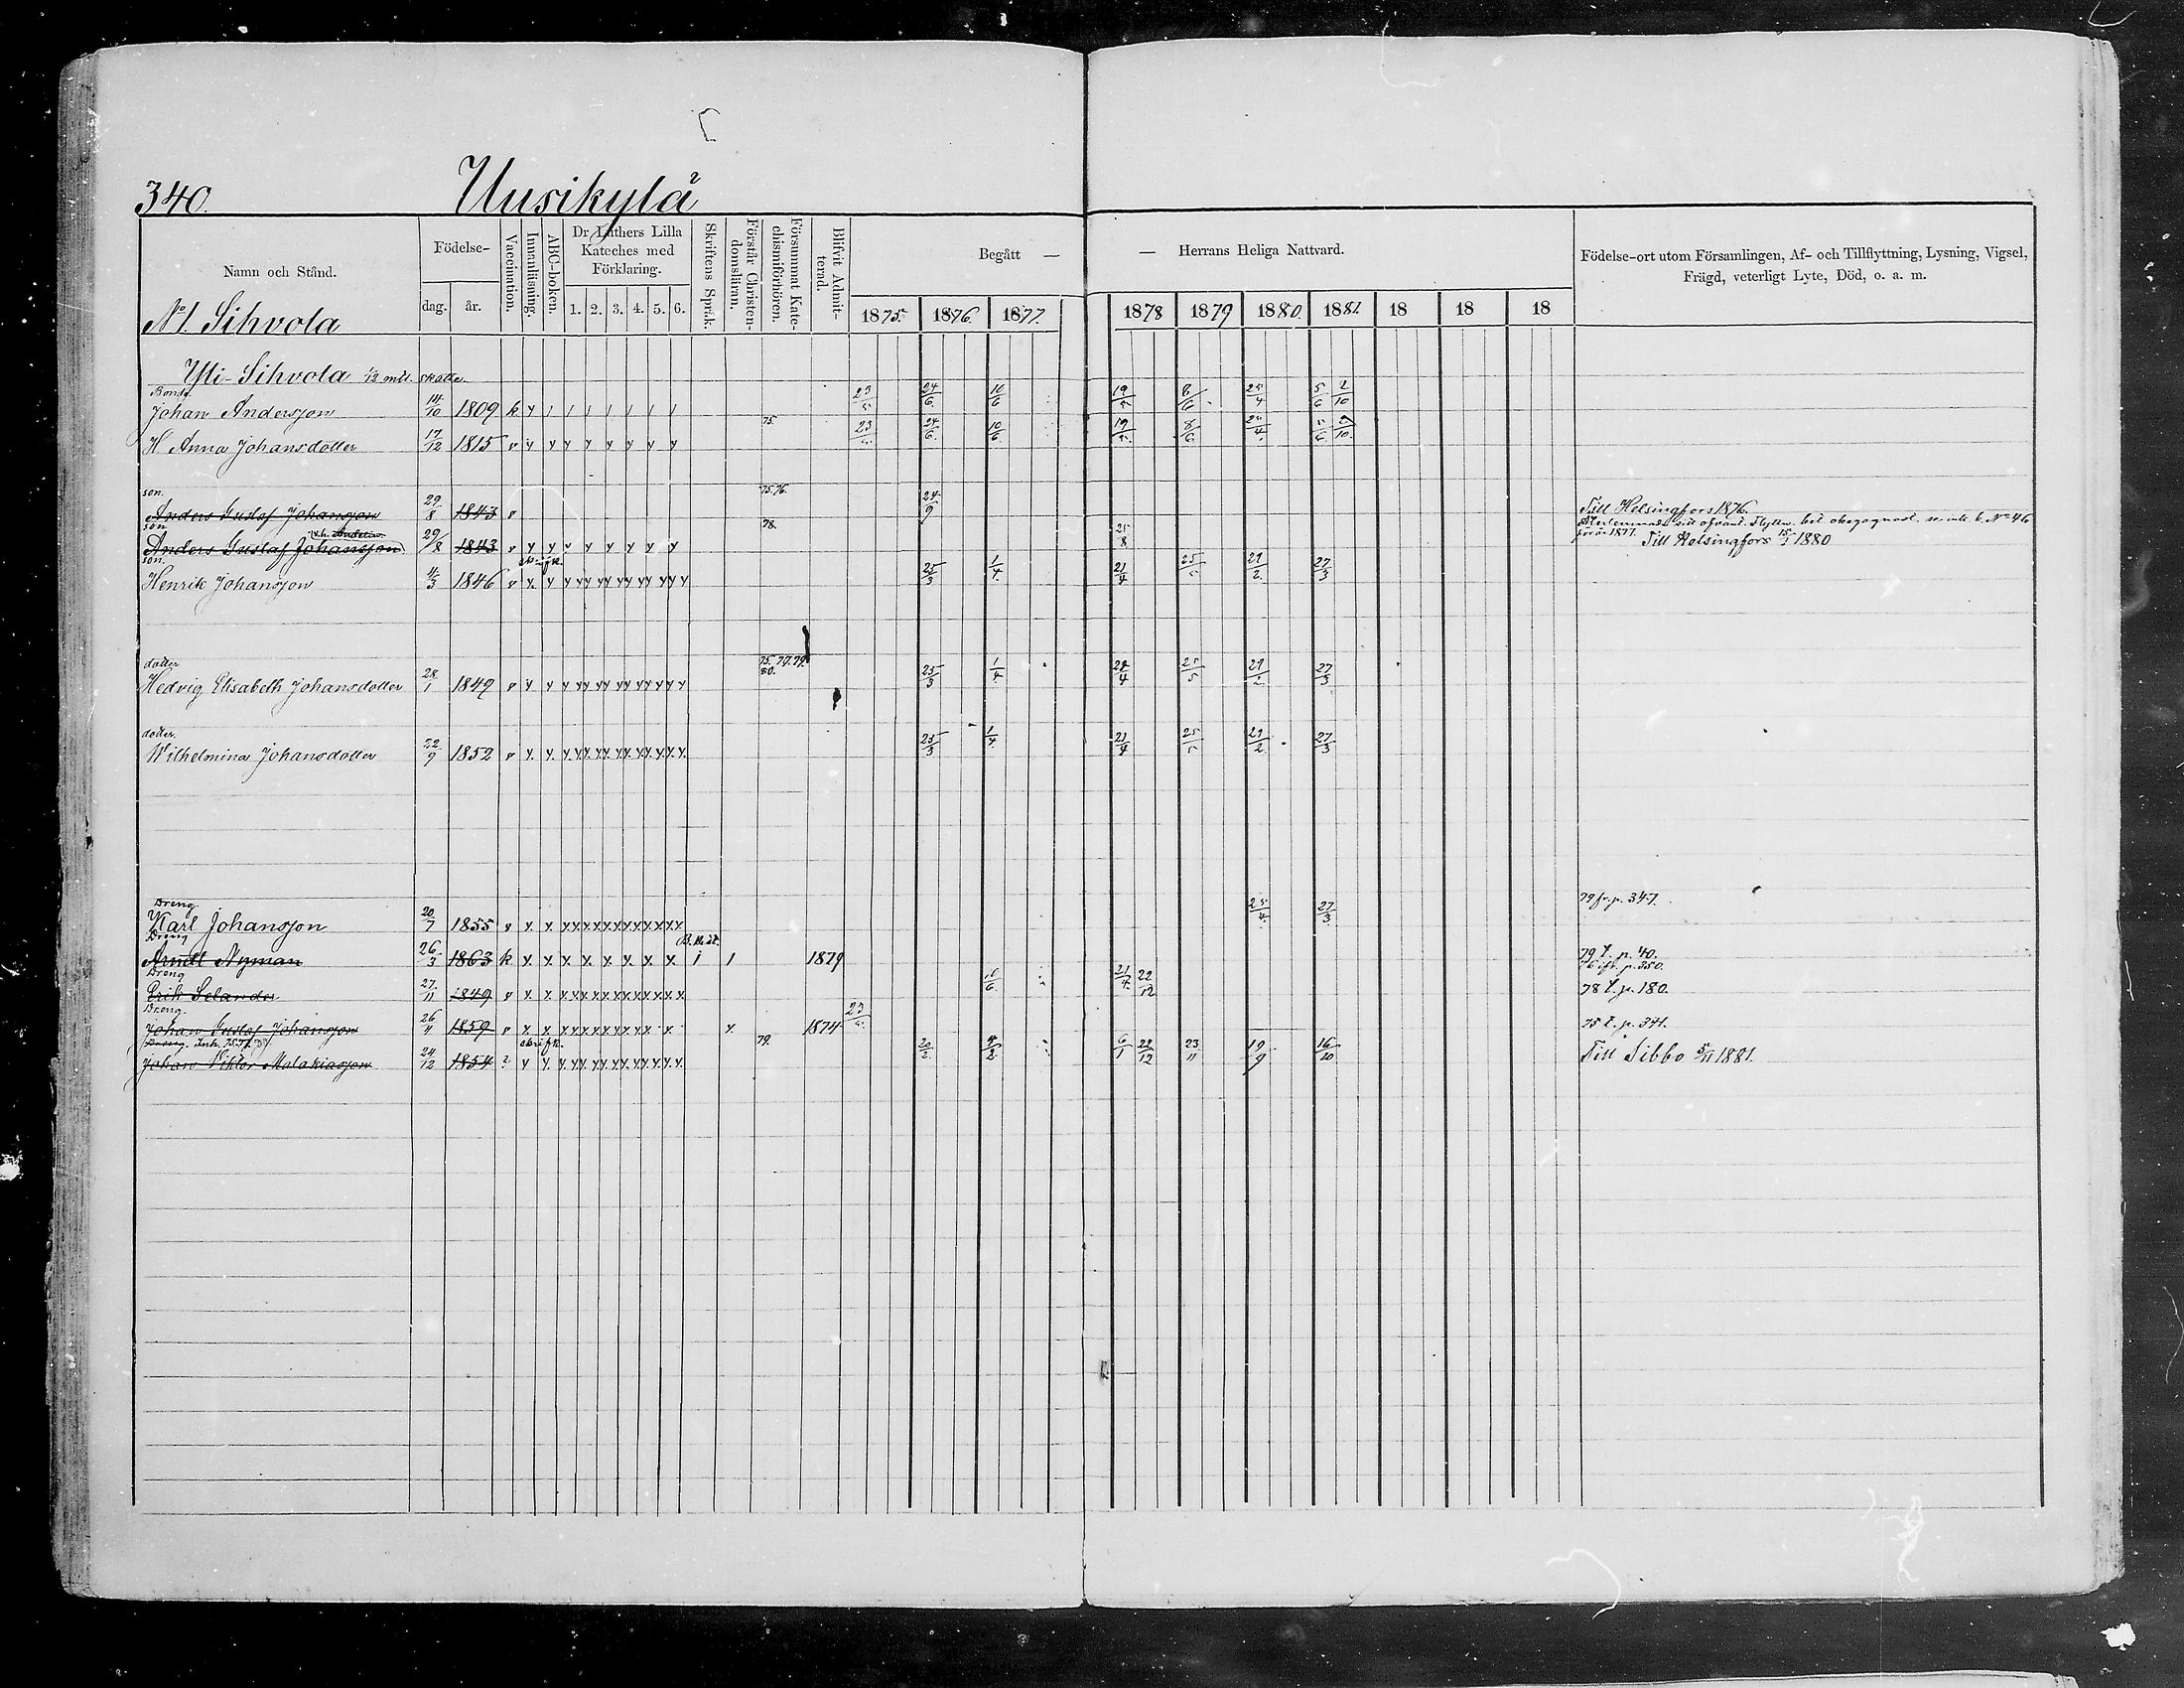 340. Uusikylä
Namn och Stånd. Födelse- dag. år. Vaccination. Innanläsning. ABC-boken. Dr Luthers Lilla Kateches med Förklaring. 1. 2. 3. 4. 5. 6. Skriftens Språk. Förstår Christen-domsläran. Försummat Kate-chismiförhören. Blifvit Admit-terad. Begått — — Herrans Heliga Nattvard. Födelse-ort utom Församlingen, Af- och Tillflyttning, Lysning, Vigsel, Frägd, veterligt Lyte, Död, o. a. m.
1875. 1876. 1877. 1878 1879 1880. 1881. 18 18 18
No 1. Sihvola
Yli-Sihvola 1/12 mtl. skatte.
Bonde.
Johan Andersson 14/10 1809 k y / / / / / / / 23/5 24/6. 10/6 19/5 8/6 25/4 5/6 2/10
H Anna Johansdotter 17/12 1815 v y y y y y y y y 75. 23/5 24/6. 10/6. 19/5. 8/6. 25/4. 5/6 2/10.
son.
Anders Gustaf Johansson 29/8 1843 v 75.76. 24/9 Till Helsingfors 1876.
son
Anders Gustaf Johansson 29/8 1843 v y y y y y y y y 78. 25/8 för år 1877. Till Helsingfors 15/1 1880
son.
Henrik Johansson 11/3 1846 v y. y yy yy yy yy yy y 25/3 1/4. 21/4 25/5 29/2. 27/3
dotter
Hedvig Elisabeth Johansdotter 28/1 1849 v y y y yy yy yy yy yy y 75. 77. 79. 80. 25/3 1/4. 22/4 25/5 29/2. 27/3
dotter.
Wilhelmina Johansdotter 22/9 1852 v y. y. 25/3 1/4. 21/4 25/5 29/2. 27/3
Dreng.
Karl Johansson 20/7 1855 v y. y. 25/4. 27/3. 79 fr. p. 347.
Dreng
Nyman 26/3 1863 k y. y. y. y. y. y. y. y. 1 1 1879 79 t. p. 40.
Dreng
Erik Selander 27/11 1849 v y. y. 10/6. 21/4. 22/12 76 ifr. p. 350.
78 t. p. 180.
Dreng.
Johan Gustaf Johansson 26/11 1859 v y. y. y. 1874 23/5. 75 t. p. 341.
Dreng.
Johan Viktor Malakiasson 24/12 1854 ? y y. 79. 20/2. 4/2. 6/1 22/12 23/11 19/9 16/10 Till Sibbo 5/11 1881.